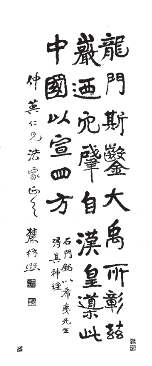 龍門斯鑿大禹所彰茲
巖迺穴肇自漢皇導此
中國以宣四方
石門銘以希夷先生
得其神理
仲英仁兄法家正之